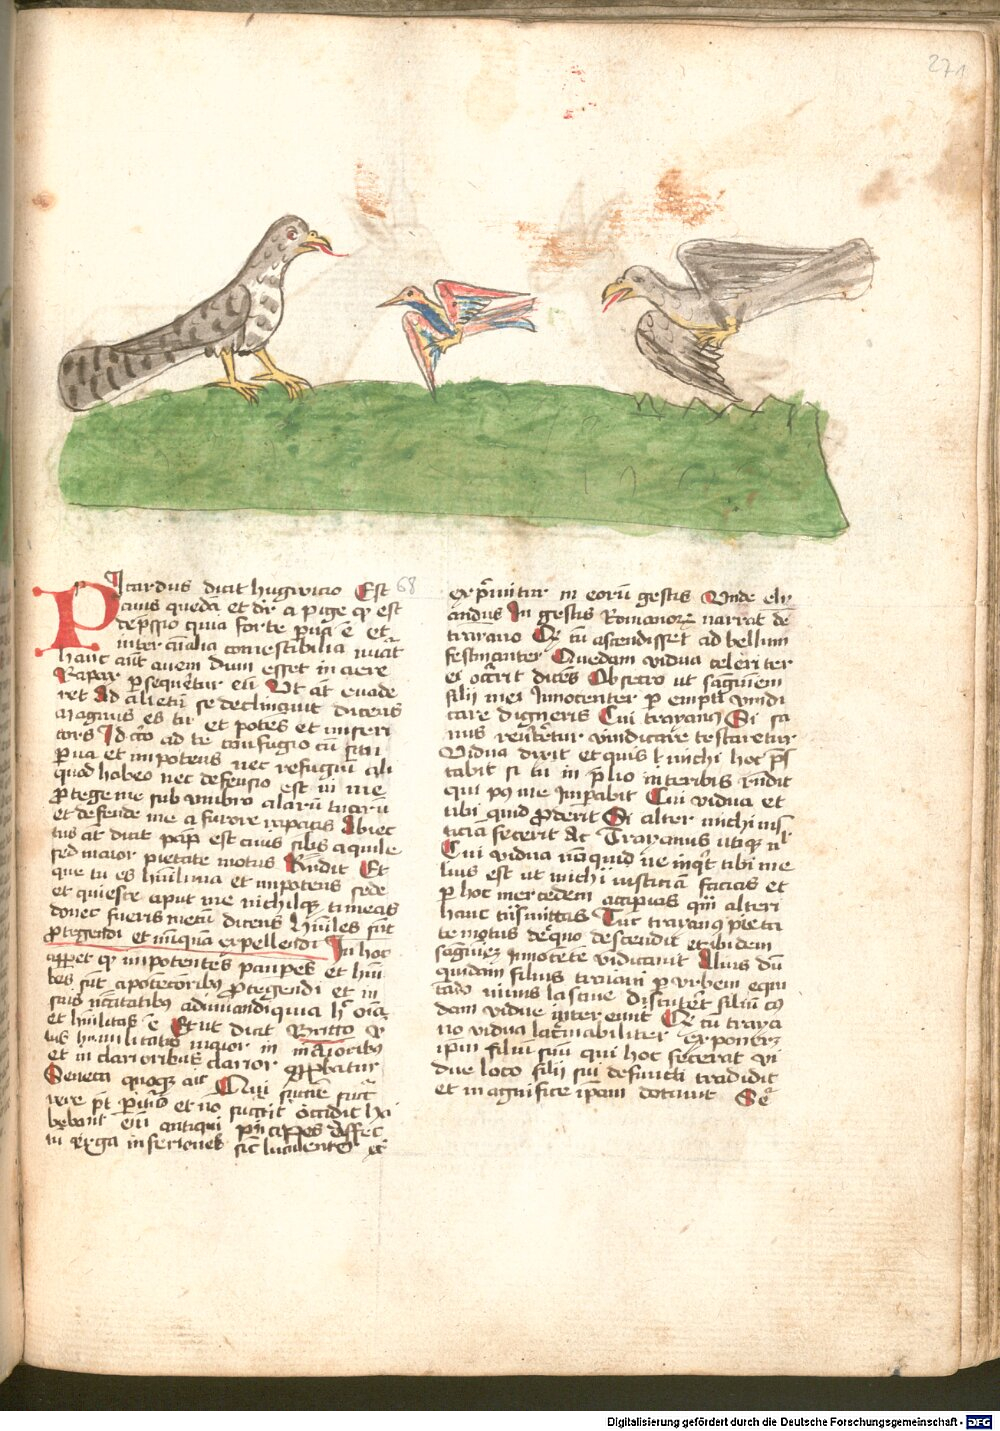 271
Picardus dicit hugwicio Est 68
auis quedā et dr̄ a pige qͥ est
depſſio quia forte pͥua ē et
inter om̄alia comestibilia
hanc aūt auem dum esset in aere
Rapax perseqͥretur eū Ut at euade
ret Ad alietū se declinauit dicens
magnus es tu et potes et miseri
cors Idcͦo ad te confugio cū sim
pͥua et impotens nec refugiū ali
quod habeo nec defensio est in me
ꝓtege me sub umbra alarū tuarū
et defende me a furore rapacis Aliec
tus at dicit pāp est auis siłis aquile
sed maior pietate motus Rn̄dit Et
que tu es humilima et impotens sede
et quiesce aput me nichilqꝫ timeas
donec fueris mecū dicens Hūiles sūt
ꝓtegendi et nūquā expellendi In hoc
apparet qͥ impotentes paupes et hūi
les sūt a potētoribꝰ ꝓtegendi et in
suis nc̄citatibꝰ adiuuandi quia
et hūilitas ē Et ut dicit
lus humilitatio maior in maioribꝰ
et in clarioribus clarior
Seneca quoqꝫ ait Cui
uere pt et nō surgit occidit
bebant em̄ antiqui pͥncipes
tū erga inferiores sic luculenter
expͥmitur in eorū gestis Unde ely
andus In gestis Romanorꝫ narrat de
trayano Qꝫ cū ascendisset ad bellum
festinanter Quedam vidua celeriter
ei occͥrit dicēs Obsecro ut sanguinem
filij mei Innocenter ꝑ empti vindi
care digneris Cui trayanꝰ Si sa
nus reūterͥtur vindicare testaretur
Vidua dixit et quis michi hoc pͥs
tabit si tu in pͥlio interibis Rn̄dit
qui pꝰ me Imperabit Cui vidua et
tibi quid ꝓderit Si alter michi ius
ticiā fecerit Ac Trayanus utiqꝫ nl̄
Cui vidua nūquid ne inqͥt tibi me
lius est ut michi iusticiā facias et
ꝑ hoc mercedem accipias qm̄ alteri
hanc tͥsmittas Tūc trayanꝰ pieta
te motus de eqͥo descendit et ibidem
sangͥnē Innocēte vidicauit Alius dū
quidam filius traiani ꝑ urbem equi
tās nimis lasciue discurreret filiū cꝰ
dam vidue interemit Qꝫ cū traya
no vidua lacrimabiliter exponeret
ipm̄ filiū suū qui hoc fecerat vi
due loco filij sui defuncti tradidit
et magnifice ip̄am dotauit
Digitalisierung gefördert durch die Deutsche Forschungsgemeinschaft - DFG